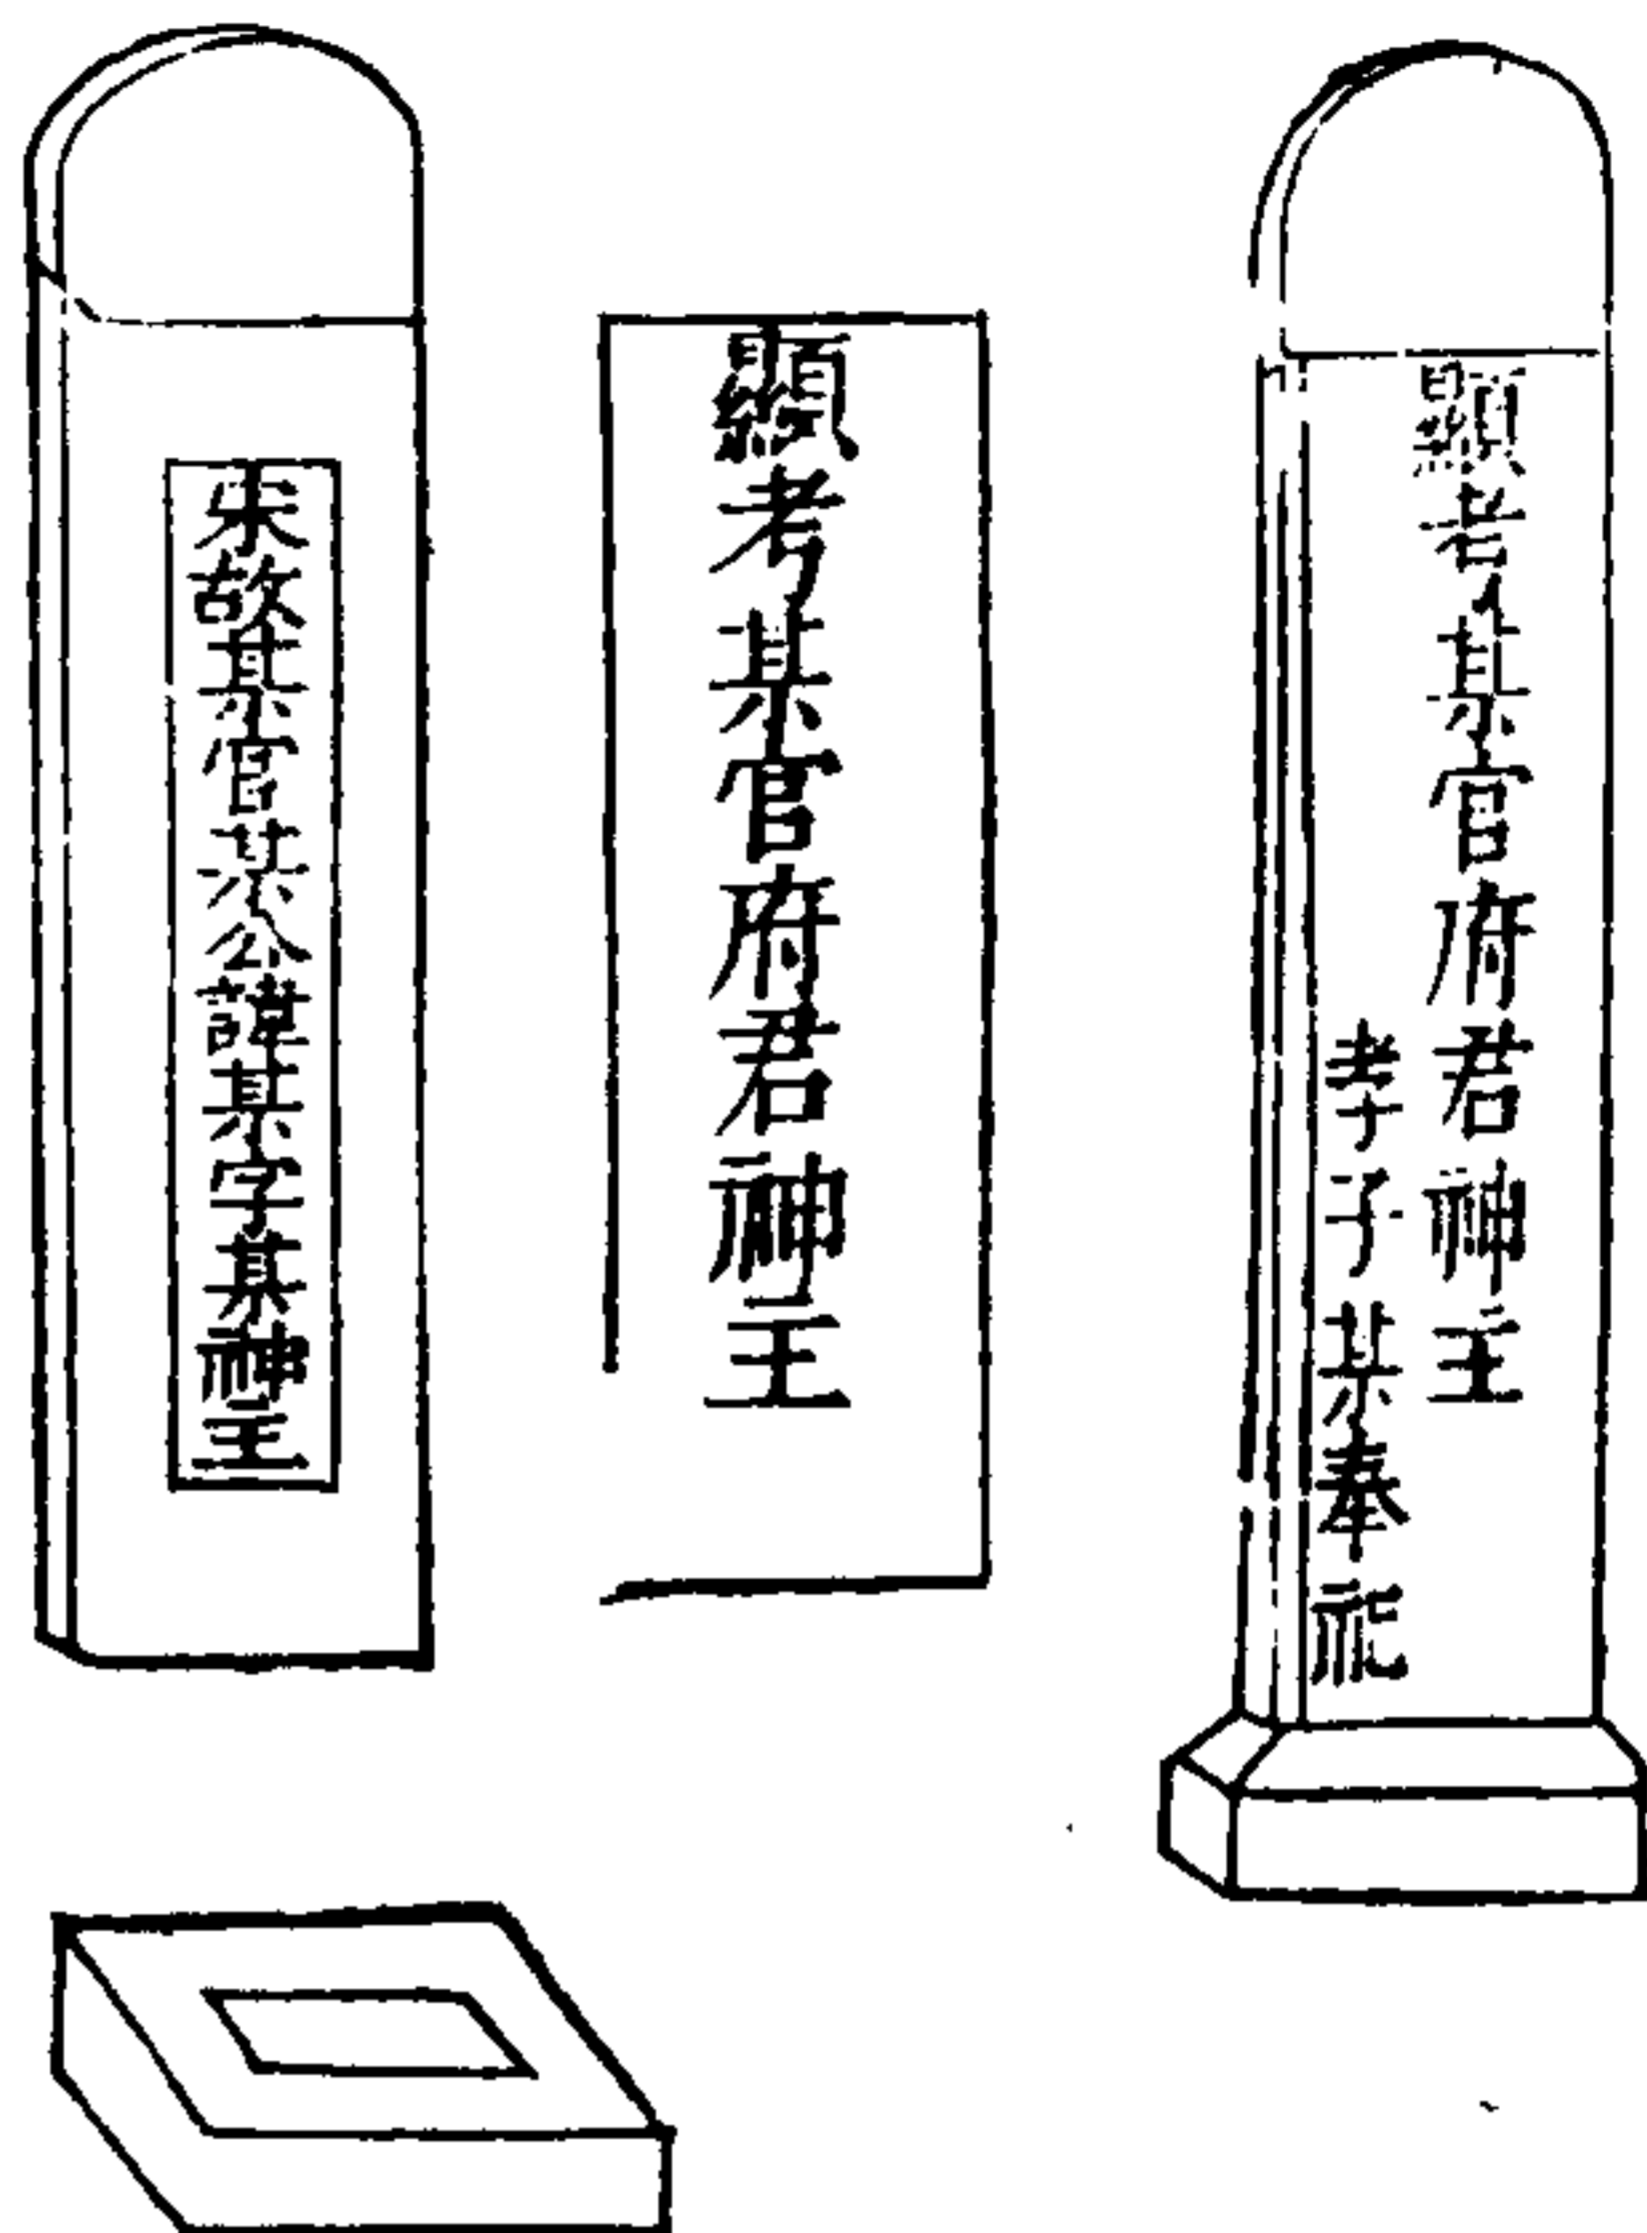 顯考某官府君神主
孝子某奉祀
顯考某官府君神主
宋故某官某公諱某字某神主